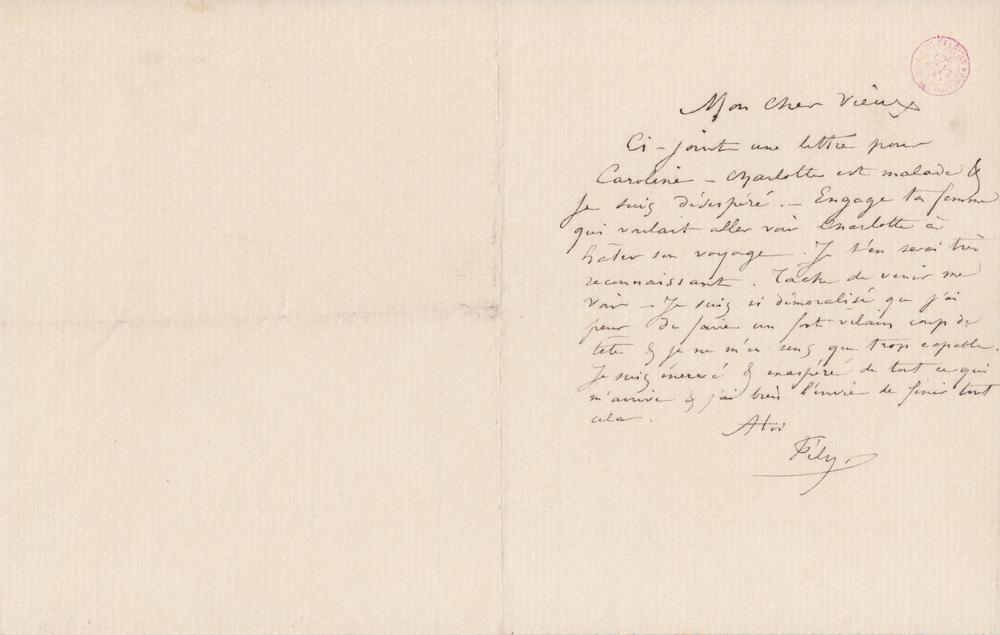 Mon cher vieux
Ci-joint une lettre pour
Caroline – Charlotte est malade &
je suis désespéré. – Engage ta femme
qui voulait aller voir Charlotte à
hâter son voyage. Je t'en serai très
reconnaissant. Tache de venir me
voir – Je suis si démoralisé que j'ai
peur de faire un fort vilain coup de
tête & je ne m'en sens que trop capable.
Je suis énervé & exaspéré de tout ce qui
m'arrive & j'ai bien l'envie de finir tout
cela.
A toi
Fély